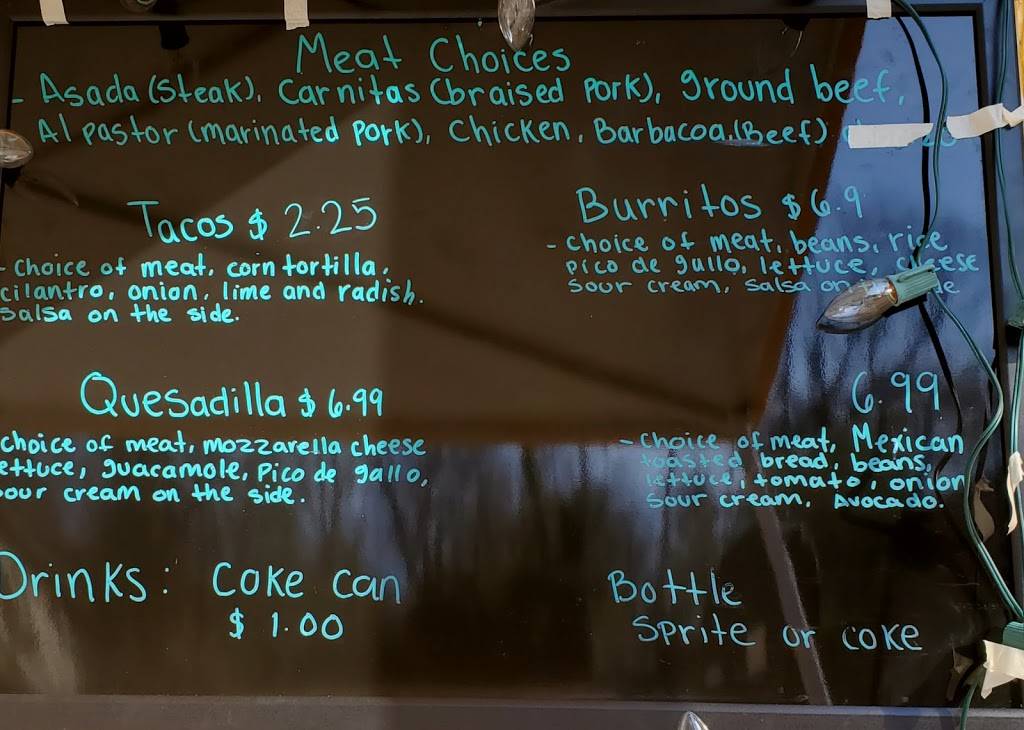 Meat Choices
- Asada (Steak), Carnitas (braised Pork), ground beef,
Al pastor (marinated pork), Chicken, Barbacoa (Beef)
Tacos $ 2.25
- Choice of meat, corn tortilla,
cilantro, onion, lime and radish.
salsa on the side.
Burritos $ 6.9
- Choice of meat, beans, rice
pico de gallo, lettuce, cheese
sour cream, salsa on
Quesadilla $ 6.99
choice of meat, mozzarella cheese
ettuce, guacamole, Pico de gallo,
our cream on the side.
6.99
- Choice of meat, Mexican
toasted bread, beans,
lettuce, tomato, onion
Sour cream, Avocado.
Drinks: Coke can
$ 1.00
Bottle
Sprite or coke